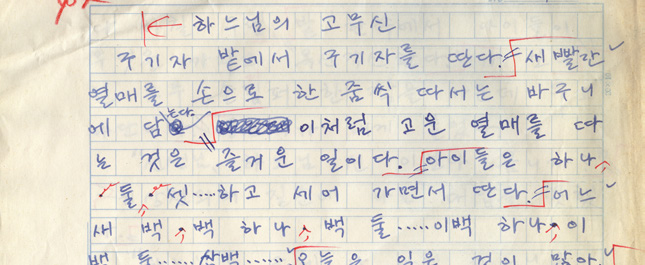 하느님의 고무신
구기자 밭에서 구기자를 딴다. 새빨간
열매를 손으로 한 줌씩 따서는 바구니
에 담는다. 이처럼 고운 열매를 따
는 것은 즐거운 일이다. 아이들은 하나,
둘, 셋……하고 세어 가면서 딴다. 어느
새 백, 백 하나, 백 둘……이백 하나, 이
백 둘……삼백…… 오늘은 익은 것이 많아